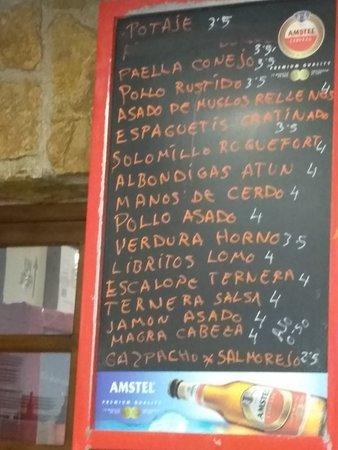 POTAJE 3'5
AMSTEL
CERVEZA
PREMIUM QUALITY
3'5
PAELLA CONEJO 3'5
POLLO RUSTIDO 3'5
ASADO DE MUSLOS RELLENOS 4
ESPAGUETIS GRATINADO 3'5
SOLOMILLO ROQUEFORT 4
ALBONDIGAS ATUN 4
MANOS DE CERDO 4
POLLO ASADO 4
VERDURA HORNO 3'5
LIBRITOS LOMO 4
ESCALOPE TERNERA 4
TERNERA SALSA 4
JAMON ASADO 4
MAGRA CABEZA 4
AJO 0'50
GAZPACHO x SALMOREJO 2'5
AMSTEL
PREMIUM QUALITY
AMSTEL